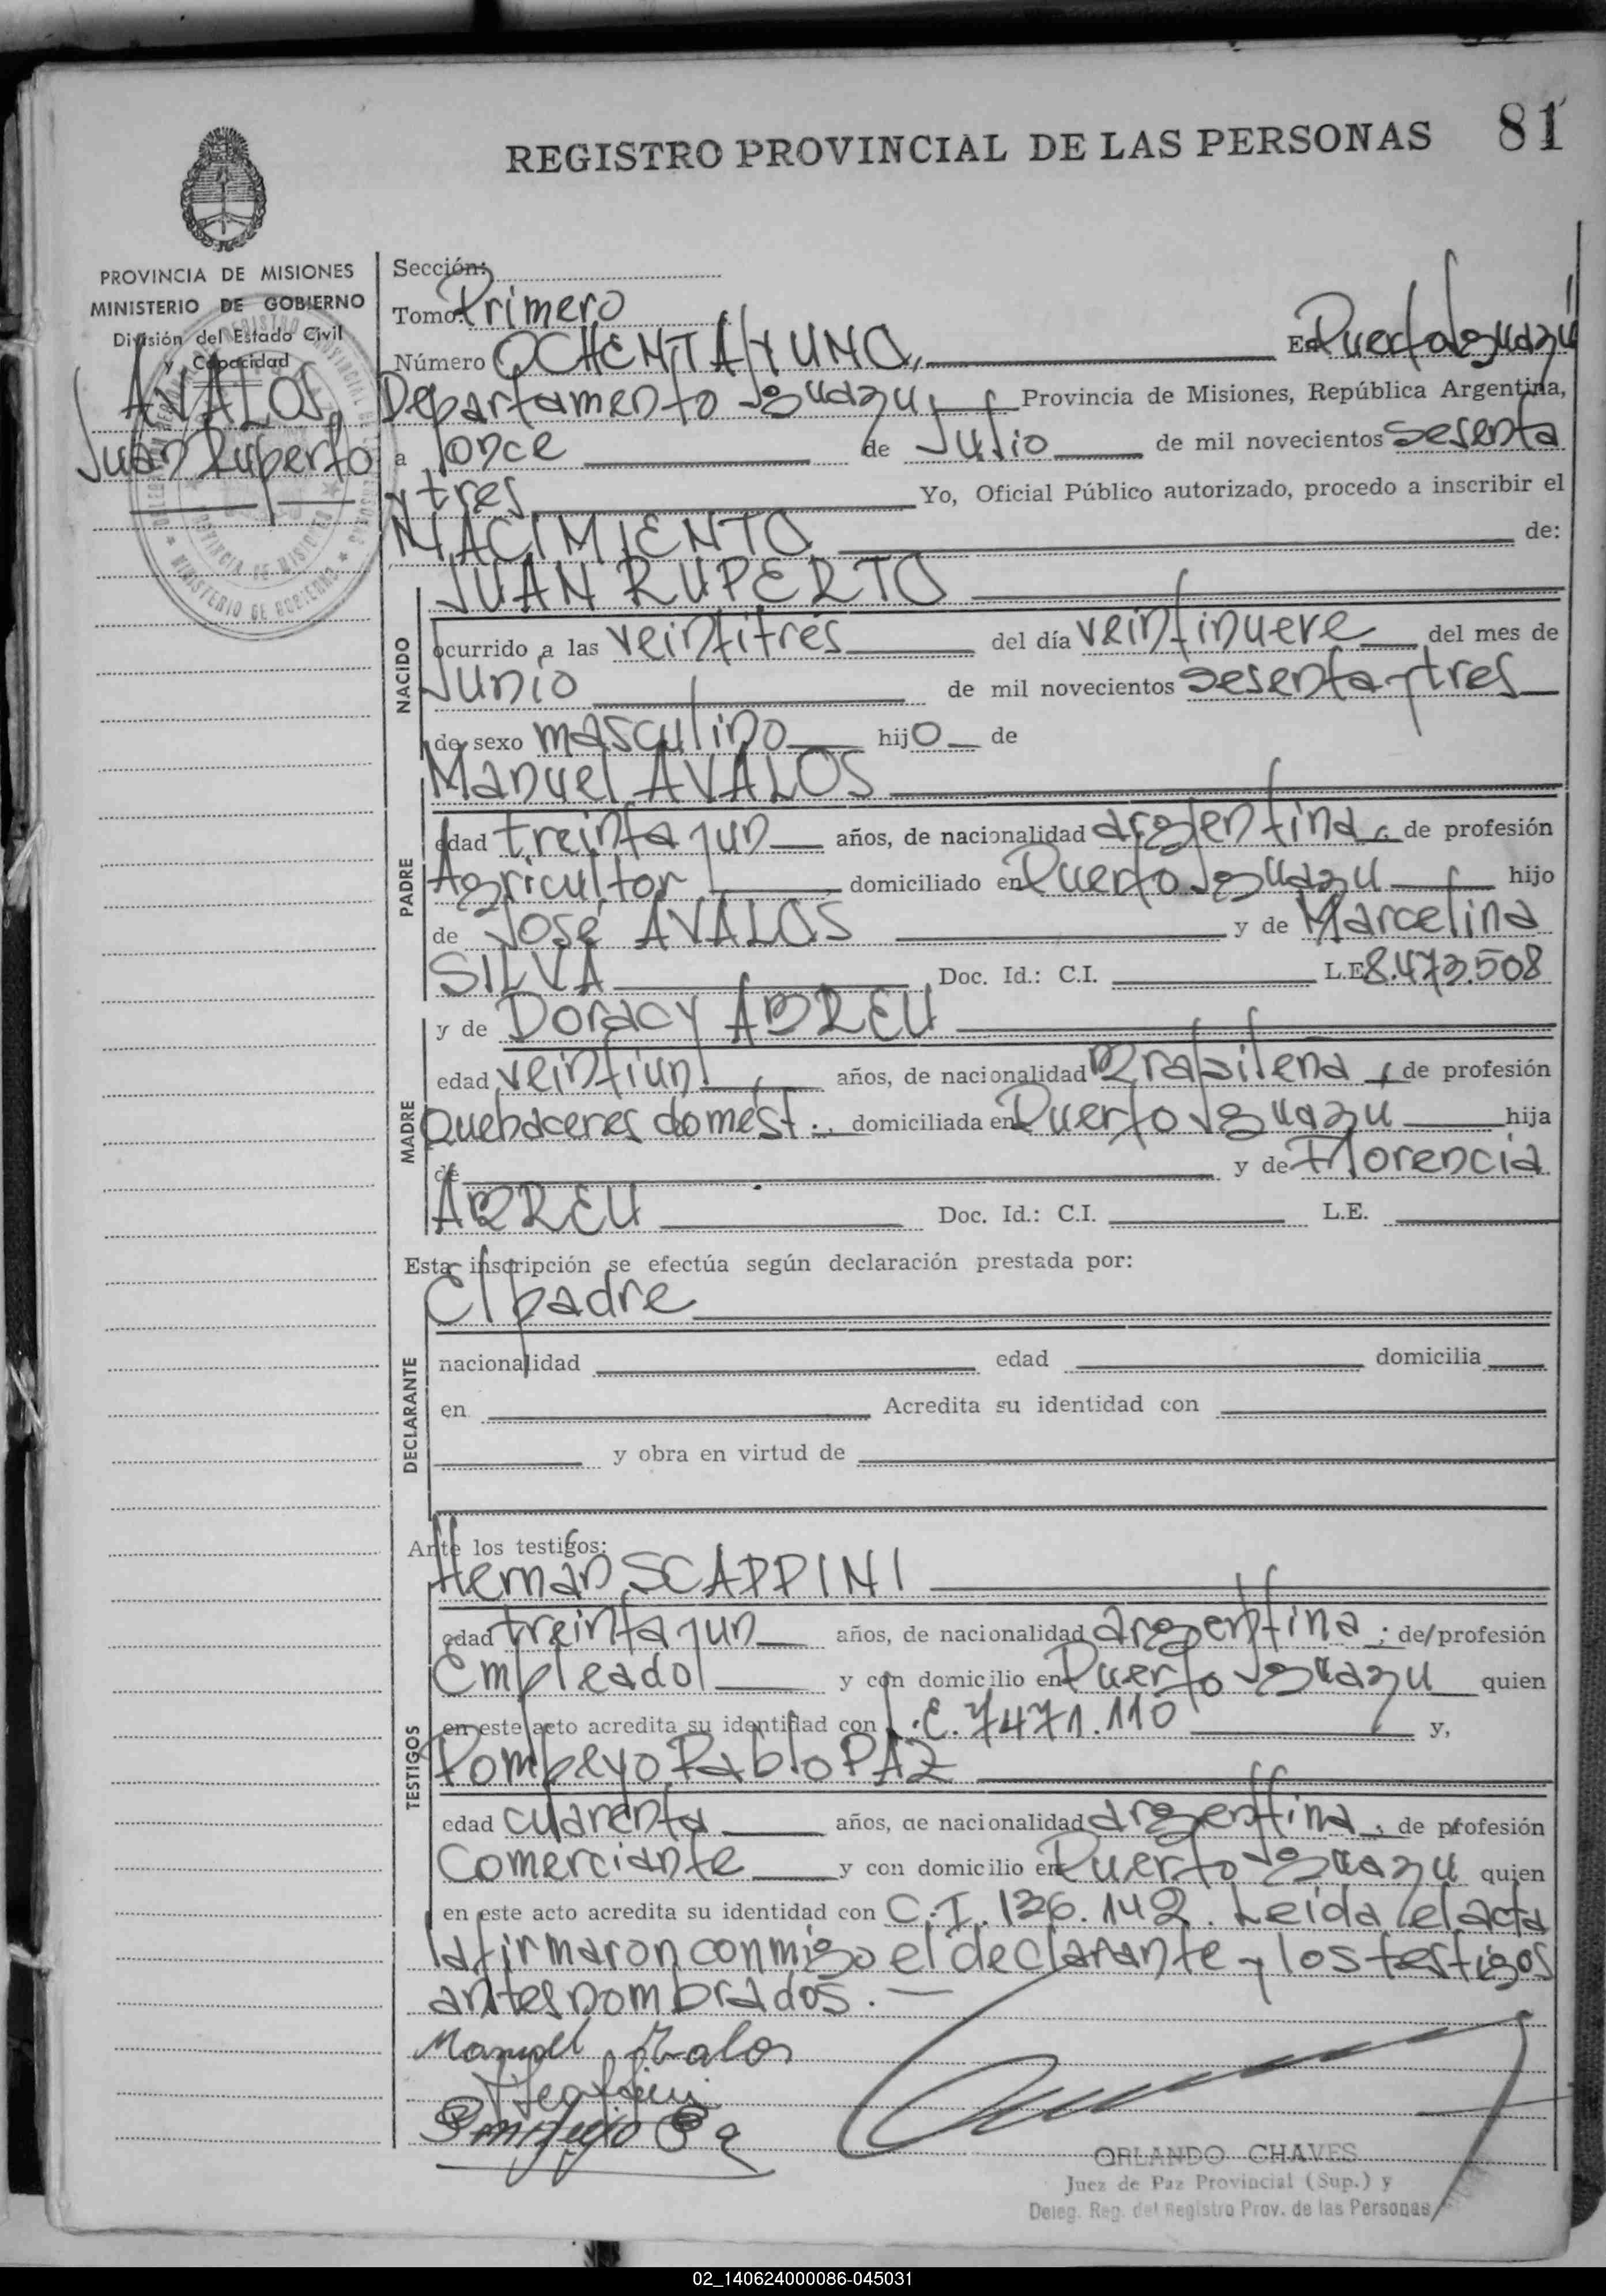 REGISTRO PROVINCIAL DE LAS PERSONAS 81
PROVINCIA DE MISIONES
MINISTERIO DE GOBIERNO
División del Estado Civil
y Capacidad
AVALOS,
Juan Ruperto
Sección:
Tomo: Primero
Número OCHENTA Y UNO, En Puerto Iguazú
Departamento Iguazu, Provincia de Misiones, República Argentina,
a once de Julio de mil novecientos sesenta
y tres Yo, Oficial Público autorizado, procedo a inscribir el
NACIMIENTO de:
JUAN RUPERTO
NACIDO
ocurrido a las veintitrés del día veintinueve del mes de
Junio de mil novecientos sesenta y tres
de sexo masculino hijo de
Manuel AVALOS
PADRE
edad treinta y un años, de nacionalidad argentina, de profesión
Agricultor domiciliado en Puerto Iguazu hijo
de José AVALOS y de Marcelina
SILVA Doc. Id.: C.I. L.E. 8.473.508
y de Doracy ABREU
MADRE
edad veintiun años, de nacionalidad Brasileña, de profesión
Quehaceres domést. domiciliada en Puerto Iguazu hija
de y de Florencia
ABREU Doc. Id.: C.I. L.E.
Esta inscripción se efectúa según declaración prestada por:
El padre
DECLARANTE
nacionalidad edad domicilia
en Acredita su identidad con
y obra en virtud de
Ante los testigos:
Hernan SCAPPINI
TESTIGOS
edad treinta y un años, de nacionalidad argentina, de profesión
Empleado y con domicilio en Puerto Iguazu quien
en este acto acredita su identidad con L.E. 7471.110 y,
Pompeyo Pablo PAZ
edad cuarenta años, de nacionalidad argentina, de profesión
Comerciante y con domicilio en Puerto Iguazu quien
en este acto acredita su identidad con C.I. 136.142. Leida el acta
la firmaron conmigo el declarante y los testigos
antes nombrados.
Manuel Abalos
ORLANDO CHAVES
Juez de Paz Provincial (Sup.) y
Deleg. Reg. del Registro Prov. de las Personas
02_140624000086-045031